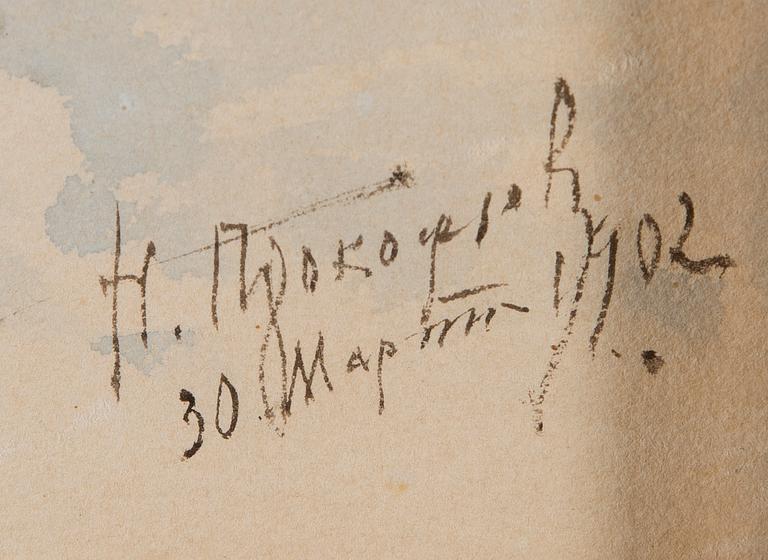 Н. Прокофьев 1902.
30 Март